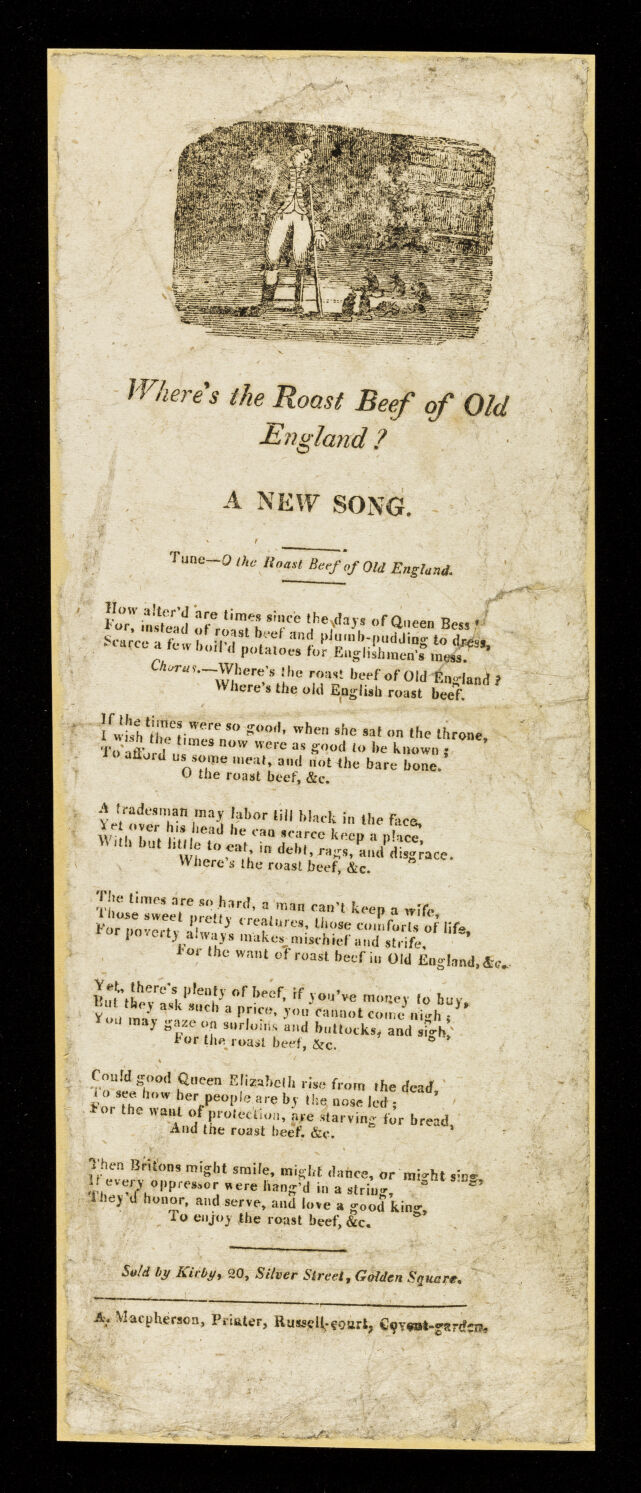 Where's the Roast Beef of Old
England?
A NEW SONG.
Tune—O the Roast Beef of Old England.
How alter'd are times since the days of Queen Bess!
For, instead of roast beef and plumb-pudding to dress,
Scarce a few boil'd potatoes for Englishmen's mess.
Chorus.—Where's the roast beef of Old England?
Where's the old English roast beef.
If the times were so good, when she sat on the throne,
I wish the times now were as good to be known;
To afford us some meat, and not the bare bone.
O the roast beef, &c.
A tradesman may labor till black in the face,
Yet over his head he can scarce keep a place,
With but little to eat, in debt, rags, and disgrace.
Where's the roast beef, &c.
The times are so hard, a man can't keep a wife,
Those sweet pretty creatures, those comforts of life,
For poverty always makes mischief and strife,
For the want of roast beef in Old England, &c.
Yet, there's plenty of beef, if you've money to buy,
But they ask such a price, you cannot come nigh;
You may gaze on surloins and buttocks, and sigh,
For the roast beef, &c.
Could good Queen Elizabeth rise from the dead,
To see how her people are by the nose led;
For the want of protection, are starving for bread,
And the roast beef. &c.
Then Britons might smile, might dance, or might sing,
If every oppressor were hang'd in a string,
They'd honor, and serve, and love a good king,
To enjoy the roast beef, &c.
Sold by Kirby, 20, Silver Street, Golden Square.
A. Macpherson, Printer, Russell-court, Covent-garden.